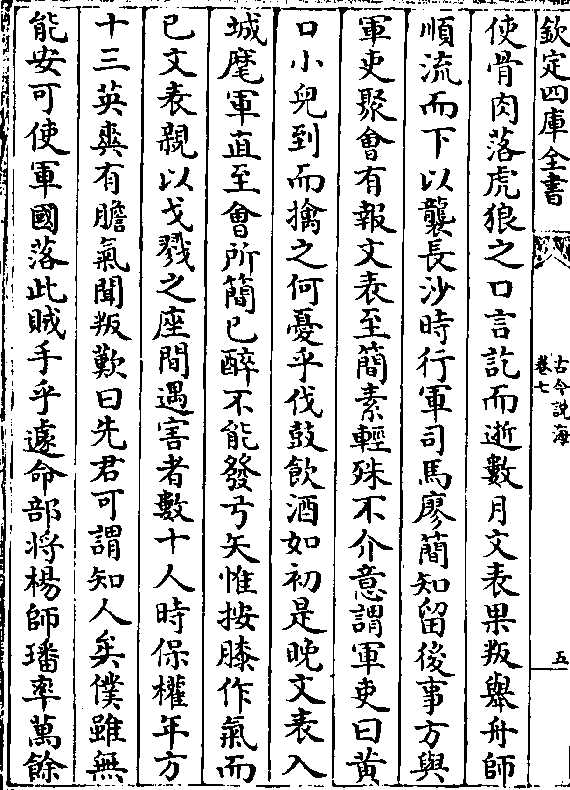 欽定四庫全書
古今說海
卷七
五
使骨肉落虎狼之口言訖而逝數月文表果叛舉舟師
順流而下以襲長沙時行軍司馬廖簡知留後事方與
軍吏聚會有報文表至簡素輕殊不介意謂軍吏曰黄
口小兒到而擒之何憂乎伐鼓飲酒如初是晚文表入
城麾軍直至會所簡已醉不能發弓矢惟按膝作氣而
已文表親以戈戮之座間遇害者數十人時保權年方
十三英爽有膽氣聞叛歎曰先君可謂知人矣僕雖無
能安可使軍國落此賊手乎遽命部將楊師璠率萬餘